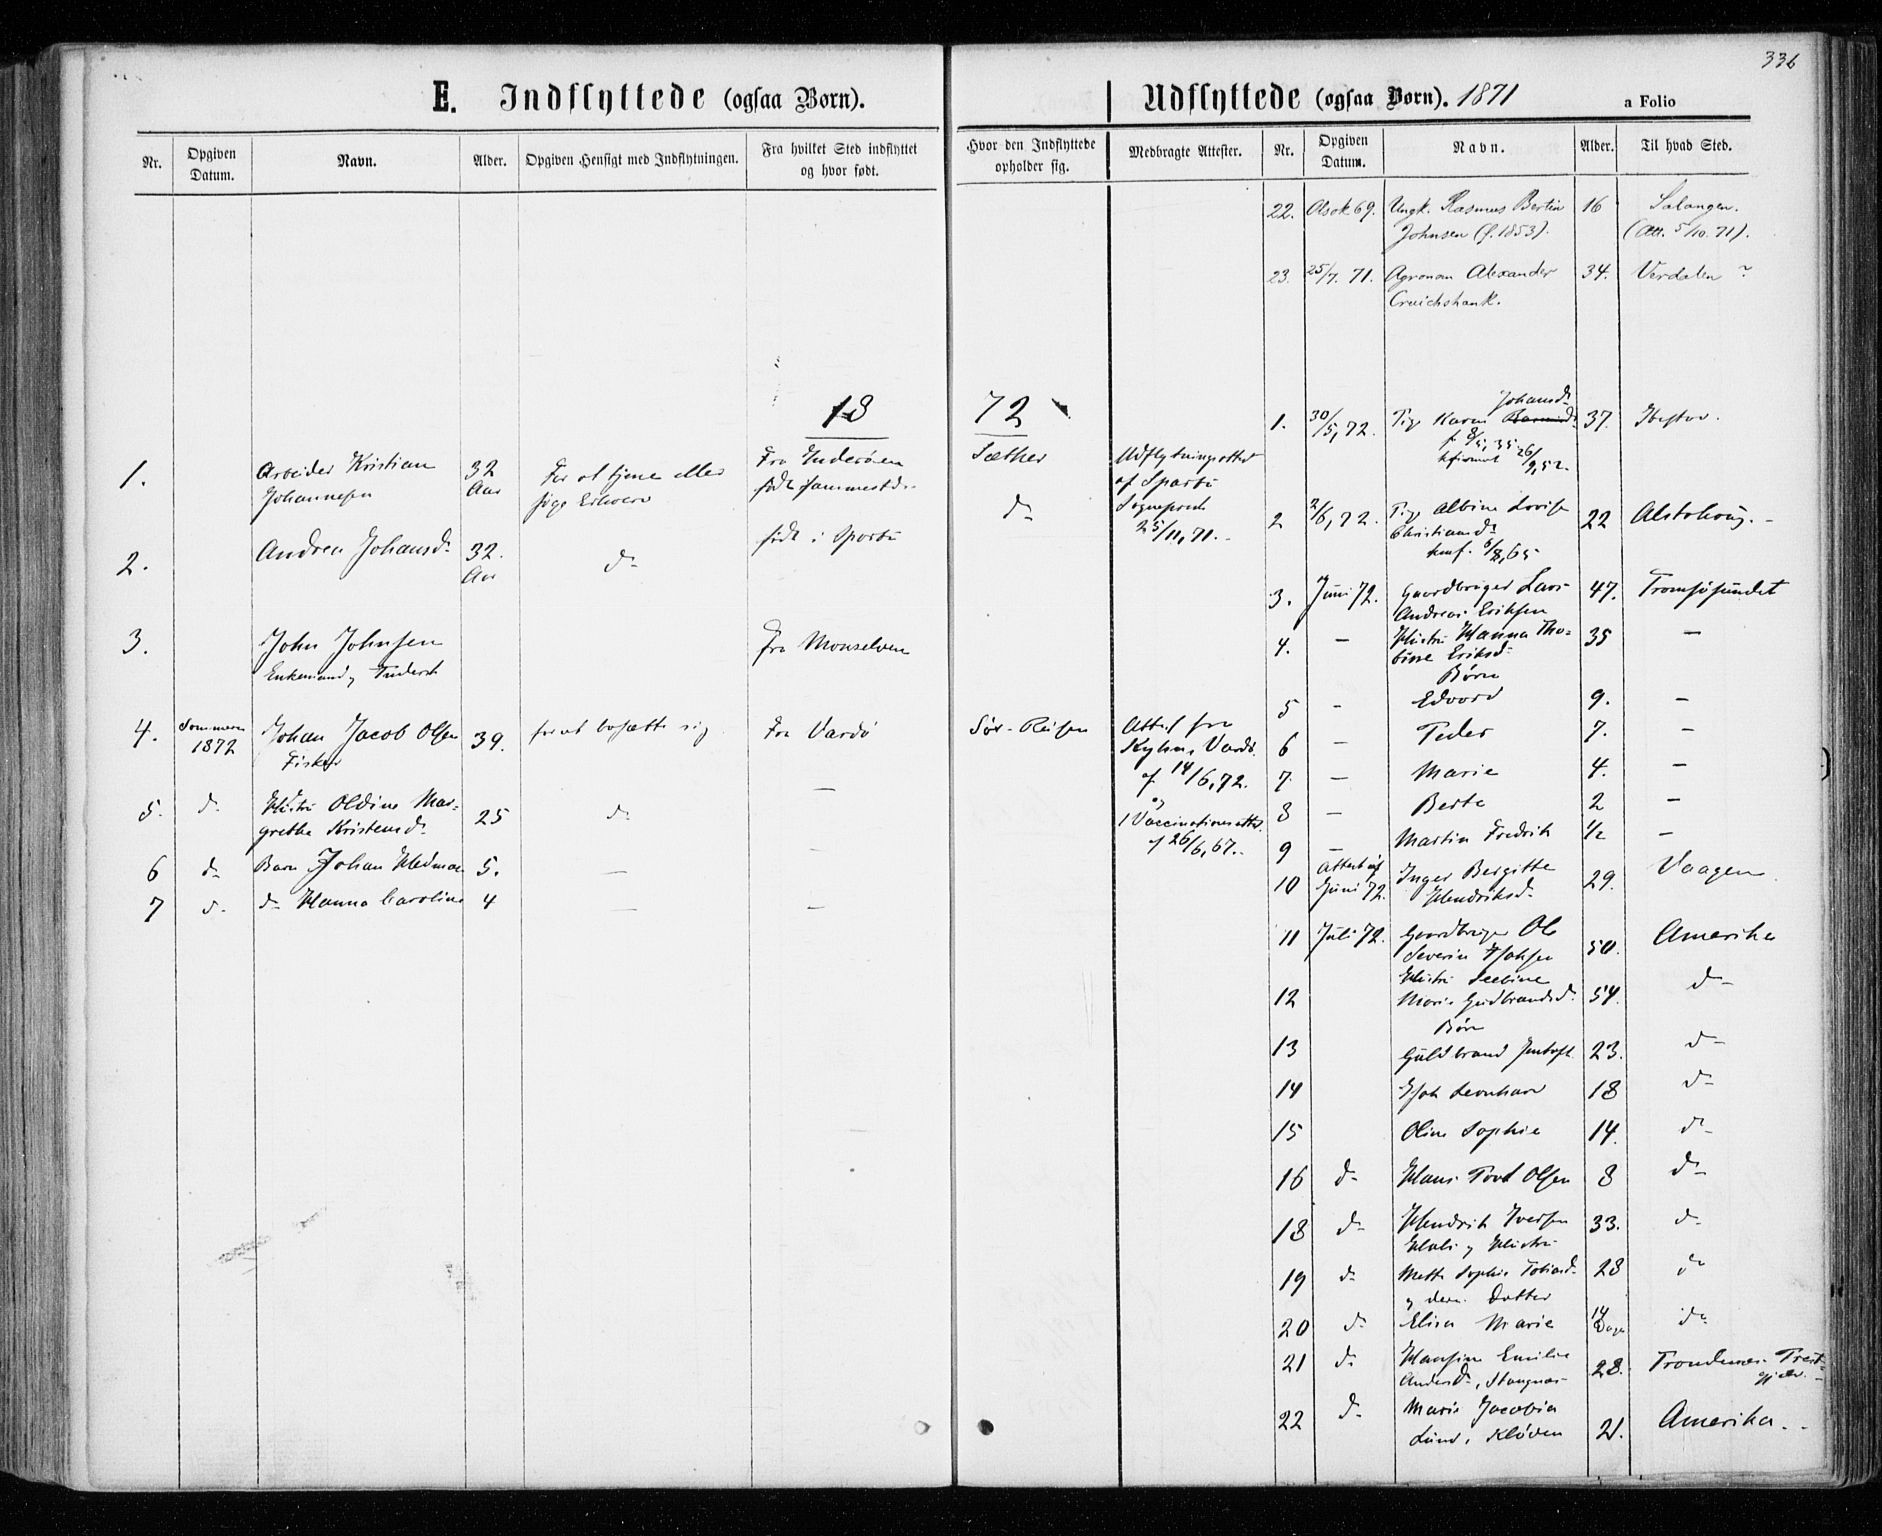 336
E. Indflyttede (ogsaa Børn).
Nr.
Opgiven Datum.
Navn.
Alder.
Opgiven Hensigt med Indflytningen.
Fra hvilket Sted indflyttet og hvor født.
Hvor den Indflyttede opholder sig.
Medbragte Attester.
18 72
1. Arbeider Kristian 32 For at tjene eller Fra Inderøen Sæther Udflytningsattest
Johannesen Aar søge Erhverv født sammestds. af Sparbu
2. Andrea Johansd. 32. Aar d. født i Sparbu d. Sognepræst
25/11, 71.
3. John Johnsen fra Monselven
Enkemand, Inderst
4. Sommeren 1872 Johan Jacob Olsen 39. for at bosætte sig Fra Vardø Sør-Reisen Attest fra
Fisker Vardø
af 14/6, 72.
5. d. Hustru Oldine Mar- 25 d. — og
grethe Kristensd. 1 Vaccinationsattest
6 d. Barn Johan Hedman 5. — — af 26/6, 67.
7 d. d. Hanna Caroline 4 — —
Udflyttede (ogsaa Børn). 1871
a Folio
Nr.
Opgiven Datum.
Navn.
Alder.
Til hvad Sted.
22. Olsok 69. Ungk. Rasmus Bertin 16 Salangen.
Johnsen (f. 1853). (Att. 5/10. 71).
23. 25/7. 71. Agronom Alexander 34. Verdalen ?
Cruichshank.
1. 30/5, 72. Pig. Karen Johansd. 37.
f. 8/5, 35
26/9, 52.
2 2/6, 72. Pig. Albine Lovise 22 Alstahoug.
Christiansd.
konf. 6/8, 65
3. Juni 72. Gaardbruger Lars 47. Tromsøsundet
Andreas Eriksen
4. — Hustru Hanna Tho- 35 —
bine Eriksd.
Børn
5 — Edvard 9. —
6 — Peder 7. —
7. — Marie 4. —
8 — Berte 2 —
9 — Martin Fredrik 1/2 —
10 Attest af Juni 72. Inger Bergitte 29. Vaagen
Hendriksd.
11 Juli 72. Gaardbruger Ole 50. Amerika
Severin
12 Hustru 54. d.
Marie Guldbrandsd.
Børn
13 Guldbrand Jentoft 23. d.
14 Leonhard 18 d.
15 Oline Sophie 14. d.
16 d. Hans Olsen 8 d.
18 d. Hendrik Iversen 33. d.
Hustru
19 d. Mette Sophie Tobiasd. 28 d.
og deres Datter
20 d. Elisa Marie 14 Dage d.
21 d. Hansine Emilie 28. Trondenes Præst-
Andersd., Stangnæs gjæld.
22 d. Marie Jacobia 21. Amerika.
Lund, Kløven